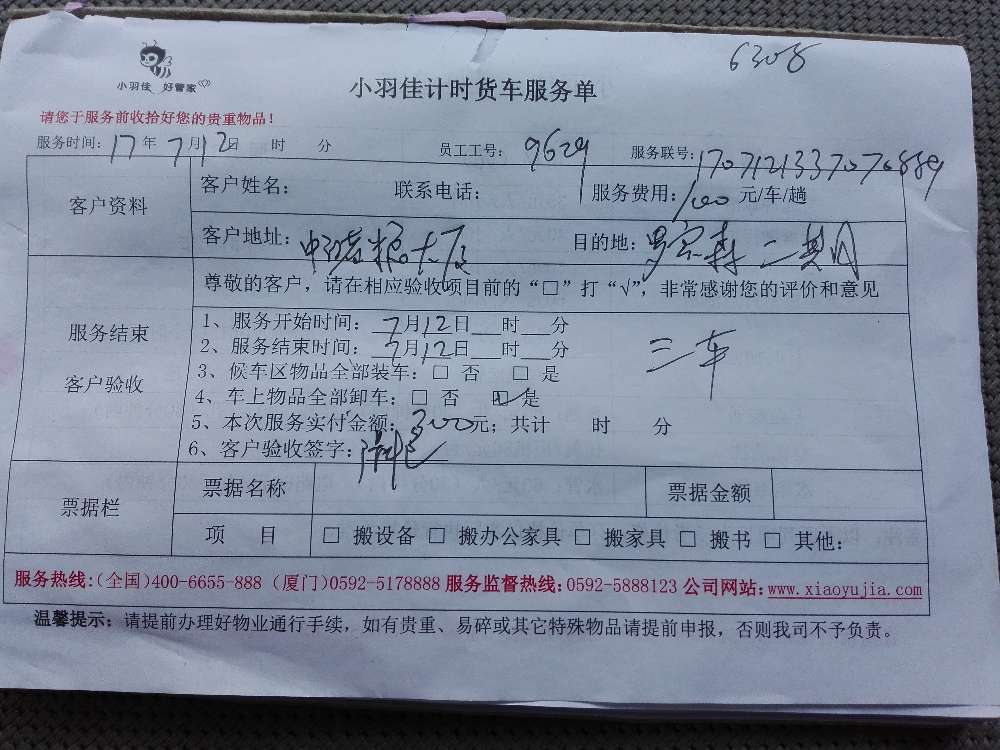 6308
小羽佳 好管家
小羽佳计时货车服务单
请您于服务前收拾好您的贵重物品!
服务时间: 17年7月12日 时 分 员工工号: 9629 服务联号: 1707121337070889
客户资料
客户姓名: 联系电话: 服务费用: 100元/车/趟
客户地址: 中 大厦 目的地: 罗宾森二期
尊敬的客户,请在相应验收项目前的“□”打“√”,非常感谢您的评价和意见
服务结束
客户验收
1、服务开始时间: 7月12日___时___分
2、服务结束时间: 7月12日___时___分
三车
3、候车区物品全部装车: □ 否 □ 是
4、车上物品全部卸车: □ 否 ☑ 是
5、本次服务实付金额: 300元; 共计 时 分
6、客户验收签字:
票据栏
票据名称 票据金额
项 目 □ 搬设备 □ 搬办公家具 □ 搬家具 □ 搬书 □ 其他:
服务热线:(全国)400-6655-888 (厦门)0592-5178888 服务监督热线: 0592-5888123 公司网站: www.xiaoyujia.com
温馨提示: 请提前办理好物业通行手续, 如有贵重、易碎或其它特殊物品请提前申报, 否则我司不予负责。